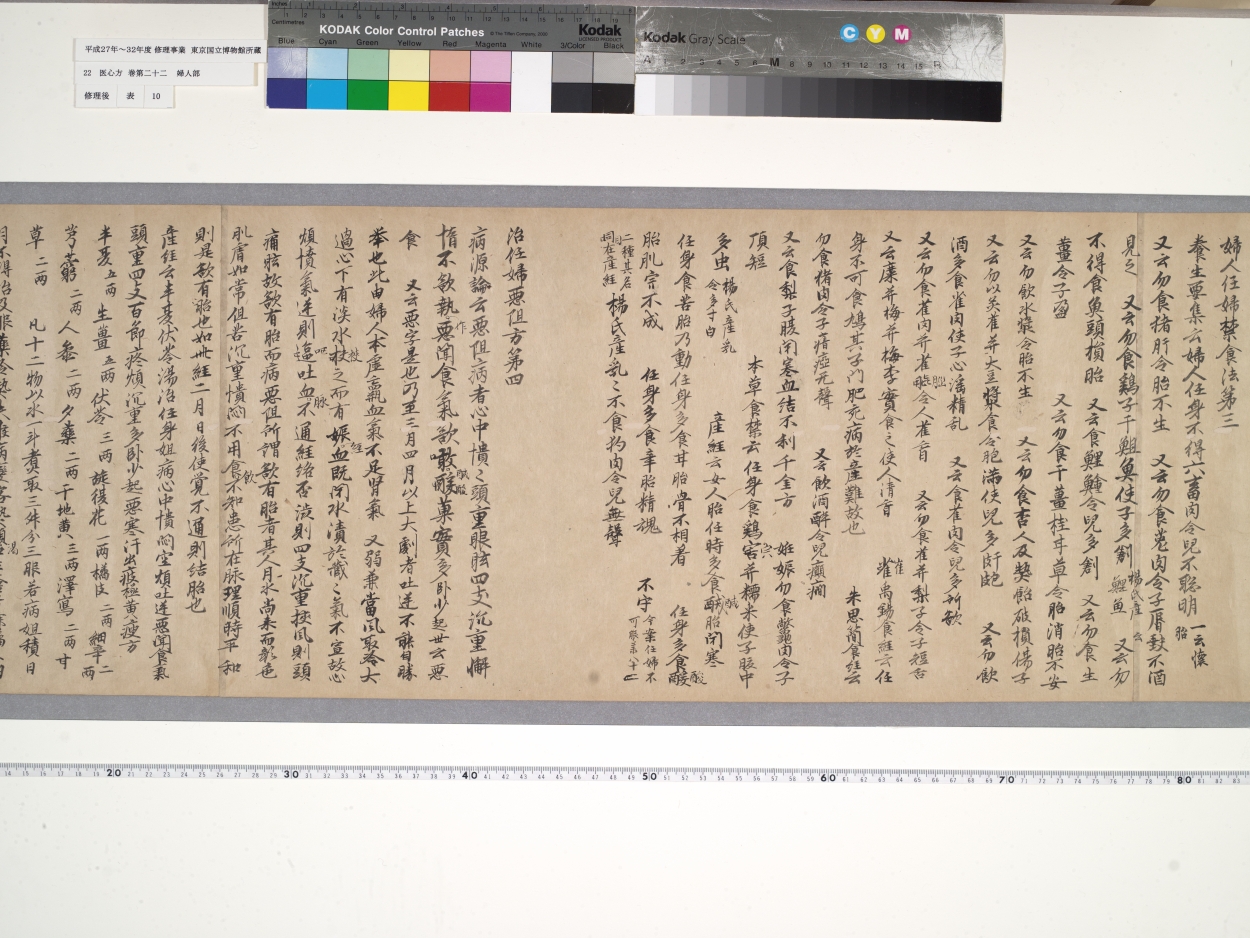 平成27年～32年度 修理事業 東京国立博物館所蔵
22 医心方 巻第二十二 婦人部
修理後 表 10
KODAK Color Control Patches
Kodak
LICENSED PRODUCT
Inches
Centimetres
Blue Cyan Green Yellow Red Magenta White 3/Color Black
Kodak Gray Scale
C Y M
A 1 2 3 4 5 6 M 8 9 10 11 12 13 14 15 B
婦人任婦禁食法第三
養生要集云婦人任身不得六畜肉令兒不聡明 一云懐胎
又云勿食猪肝令胎不生 又云勿食菟肉令子脣缺不酒
見之 又云勿食鶏子干䱇魚使子多創 楊氏産云鯉魚 又云勿
不得食魚頭損胎 又云食鯉鱠令兒多創 又云勿食生
薑令子盈 又云勿食干薑桂甘草令胎消胎不安
又云勿飲水漿令胎不生 又云勿食杏人及𤎅飴破損傷子
又云勿以炙雀并大豆漿食令胞滿使兒多奸皰 又云勿飲
酒多食雀肉使子心滛精乱 又云食雀肉令兒多所欲
又云勿食雀肉并雀𦜕令人雀盲 又云勿食雀并梨子令子短舌
又云麋并梅并梅李實食之使人清盲 雀 禹錫食經云任
身不可食鳩其子門肥充病於産難故也 朱思簡食經云
勿食猪肉令子瘖瘂无聲 又云飲酒醉令兒癲癇
又云食梨子胘閇寒血結不利千金方 姙娠勿食鱉龜肉令子
頂短 本草食禁云任身食鶏宍并糯米使子胘中
多虫 楊氏産乳令多寸白 産經云女人胎任時多食醎胎閇寒
任身食苦胎乃動任身多食甘胎骨不相着 任身多食酸
胎肌宍不成 任身多食辛胎精魂 不守
二種其名同在産經 楊氏産乳云不食狗肉令兒無聲
治任婦惡阻方第四
病源論云惡阻病者心中憒〻頭重眼眩四支沉重懈
惰不欲執作惡聞食氣欲噉醎酸菓實多臥少起世云惡
食 又云惡字是也乃至三月四月以上大劇者吐逆不能自勝
挙也此由婦人本虚羸血氣不足腎氣 又弱兼當風取冷大
過心下有淡水挾之而有娠經血既閇水漬於藏〻氣不宣故心
煩憤氣逆則嘔吐血脉不通經络否澁則四支沉重挾風則頭
痛眩故欲有胎而病惡阻所謂欲有胎者其人月水尚来而顔色
肌膚如常但苦沉重憒悶不用食飲不知患所在脉理順時平和
則是欲有胎也如此經二月日後使覺不通則結胎也
産經云半夏伏苓湯治任身姐病心中憒悶空煩吐逆惡聞食氣
頭重四支百節疼煩沉重多臥少起惡寒汗出疲極黄瘦方
半夏 五两 生薑 五两 伏苓 三两 旋復花 一两 橘皮 二两 細辛 二两
芎藭 二两 人參 二两 夕藥 二两 干地黄 三两 澤寫 二两 甘
草 二两 凡十二物以水一斗煮取三升分三服若病姐積日